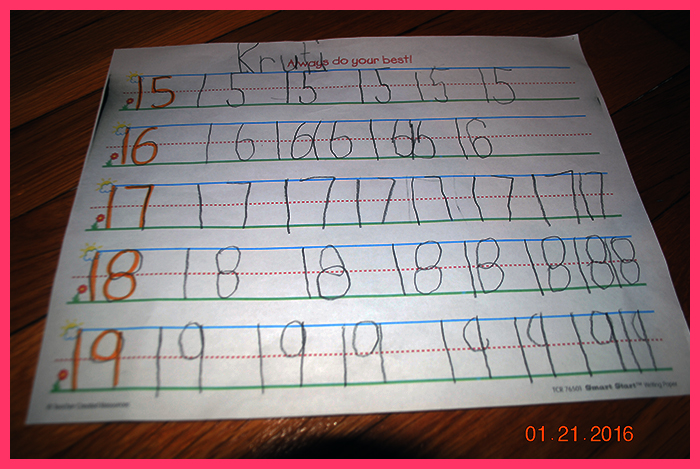 Kruti
Always do your best!
15 15 15 15 15 15
16 16 16 16 16 16 16
17 17 17 17 17 17 17 17
18 18 18 18 18 18 18 18
19 19 19 19 19 19 19 19
© Teacher Created Resources TCR 76501 Smart Start™ Writing Paper
01.21.2016